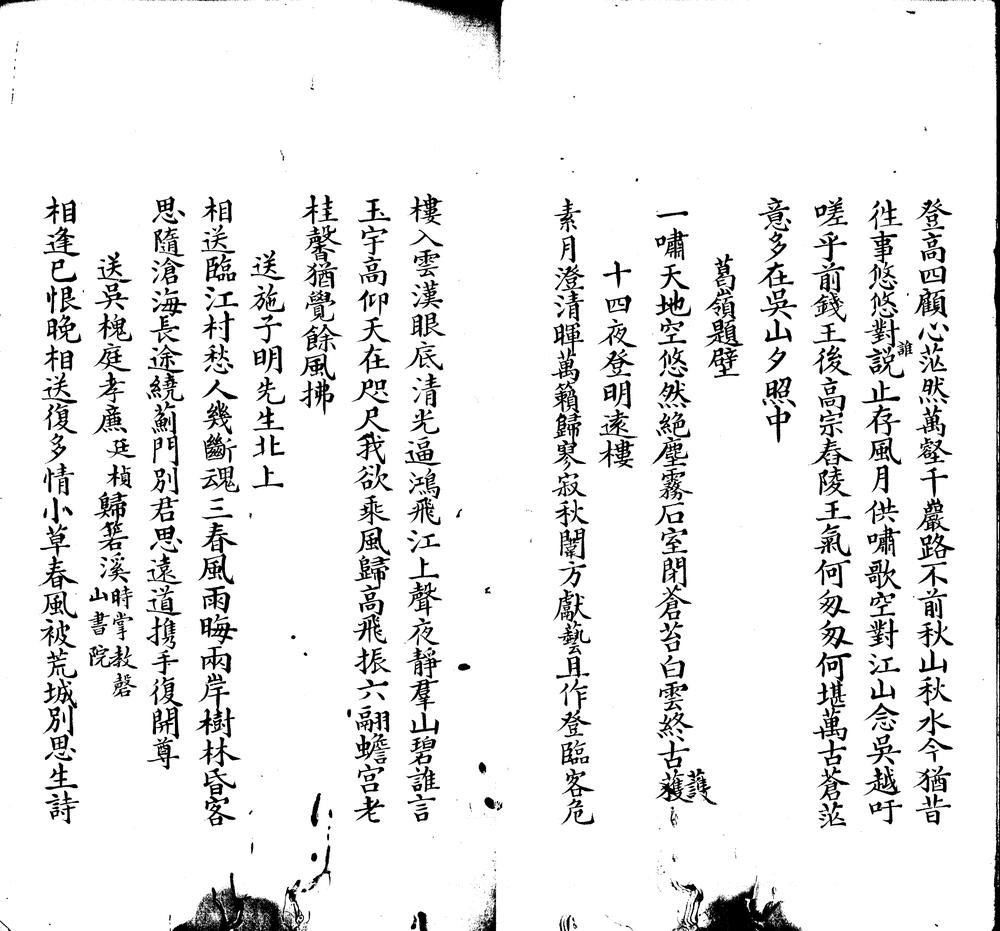 登高四顧心茫然萬壑千巖路不前秋山秋水今猶昔
徃事悠悠對誰説止存風月供嘯歌空對江山念吳越吁
嗟乎前錢王後高宗舂陵王氣何匆匆何堪萬古蒼茫
意多在吳山夕照中
葛嶺題壁
一嘯天地空悠然絶塵霧石室閉蒼苔白雲終古護
十四夜登明遠樓
素月澄清暉萬籟歸寥寂秋闈方獻藝且作登臨客危
樓入雲漢眼底清光逼鴻飛江上聲夜靜羣山碧誰言
玉宇高仰天在咫尺我欲乘風歸高飛振六翮蟾宮老
桂馨猶覺餘風拂
送施子明先生北上
相送臨江村愁人幾斷魂三春風雨晦兩岸樹林昏客
思隨滄海長途繞薊門別君思遠道携手復開尊
送吳槐庭孝亷廷楨歸箬溪時掌教磬山書院
相逢已恨晚相送復多情小草春風被荒城別思生詩